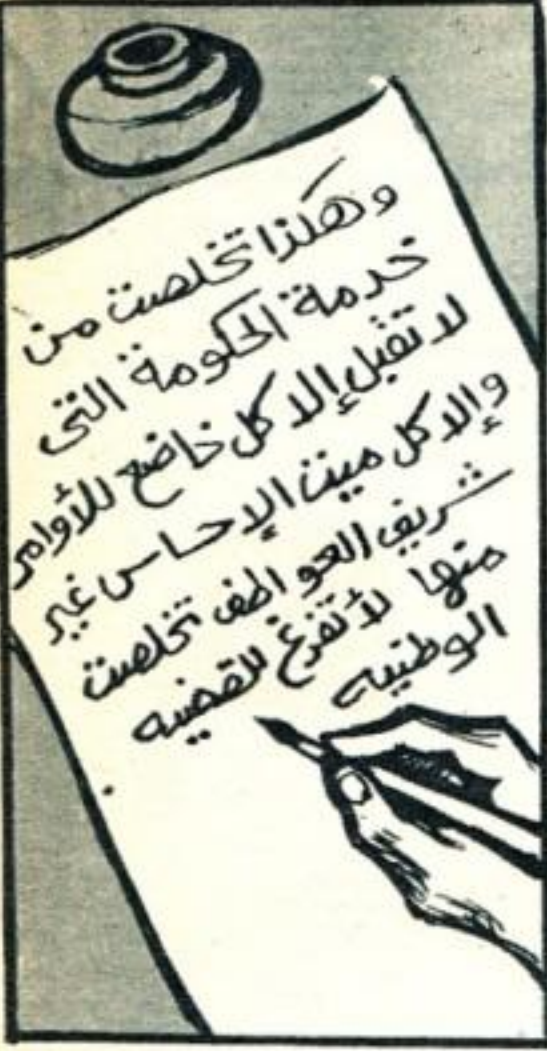 وهكذا تخلصت من
خدمة الحكومة التى
لا تقبل إلا كل خاضع للأوامر
وإلا كل ميت الإحساس غير
شريف العواطف تخلصت
منها لأتفرغ للقضيه
الوطنيه